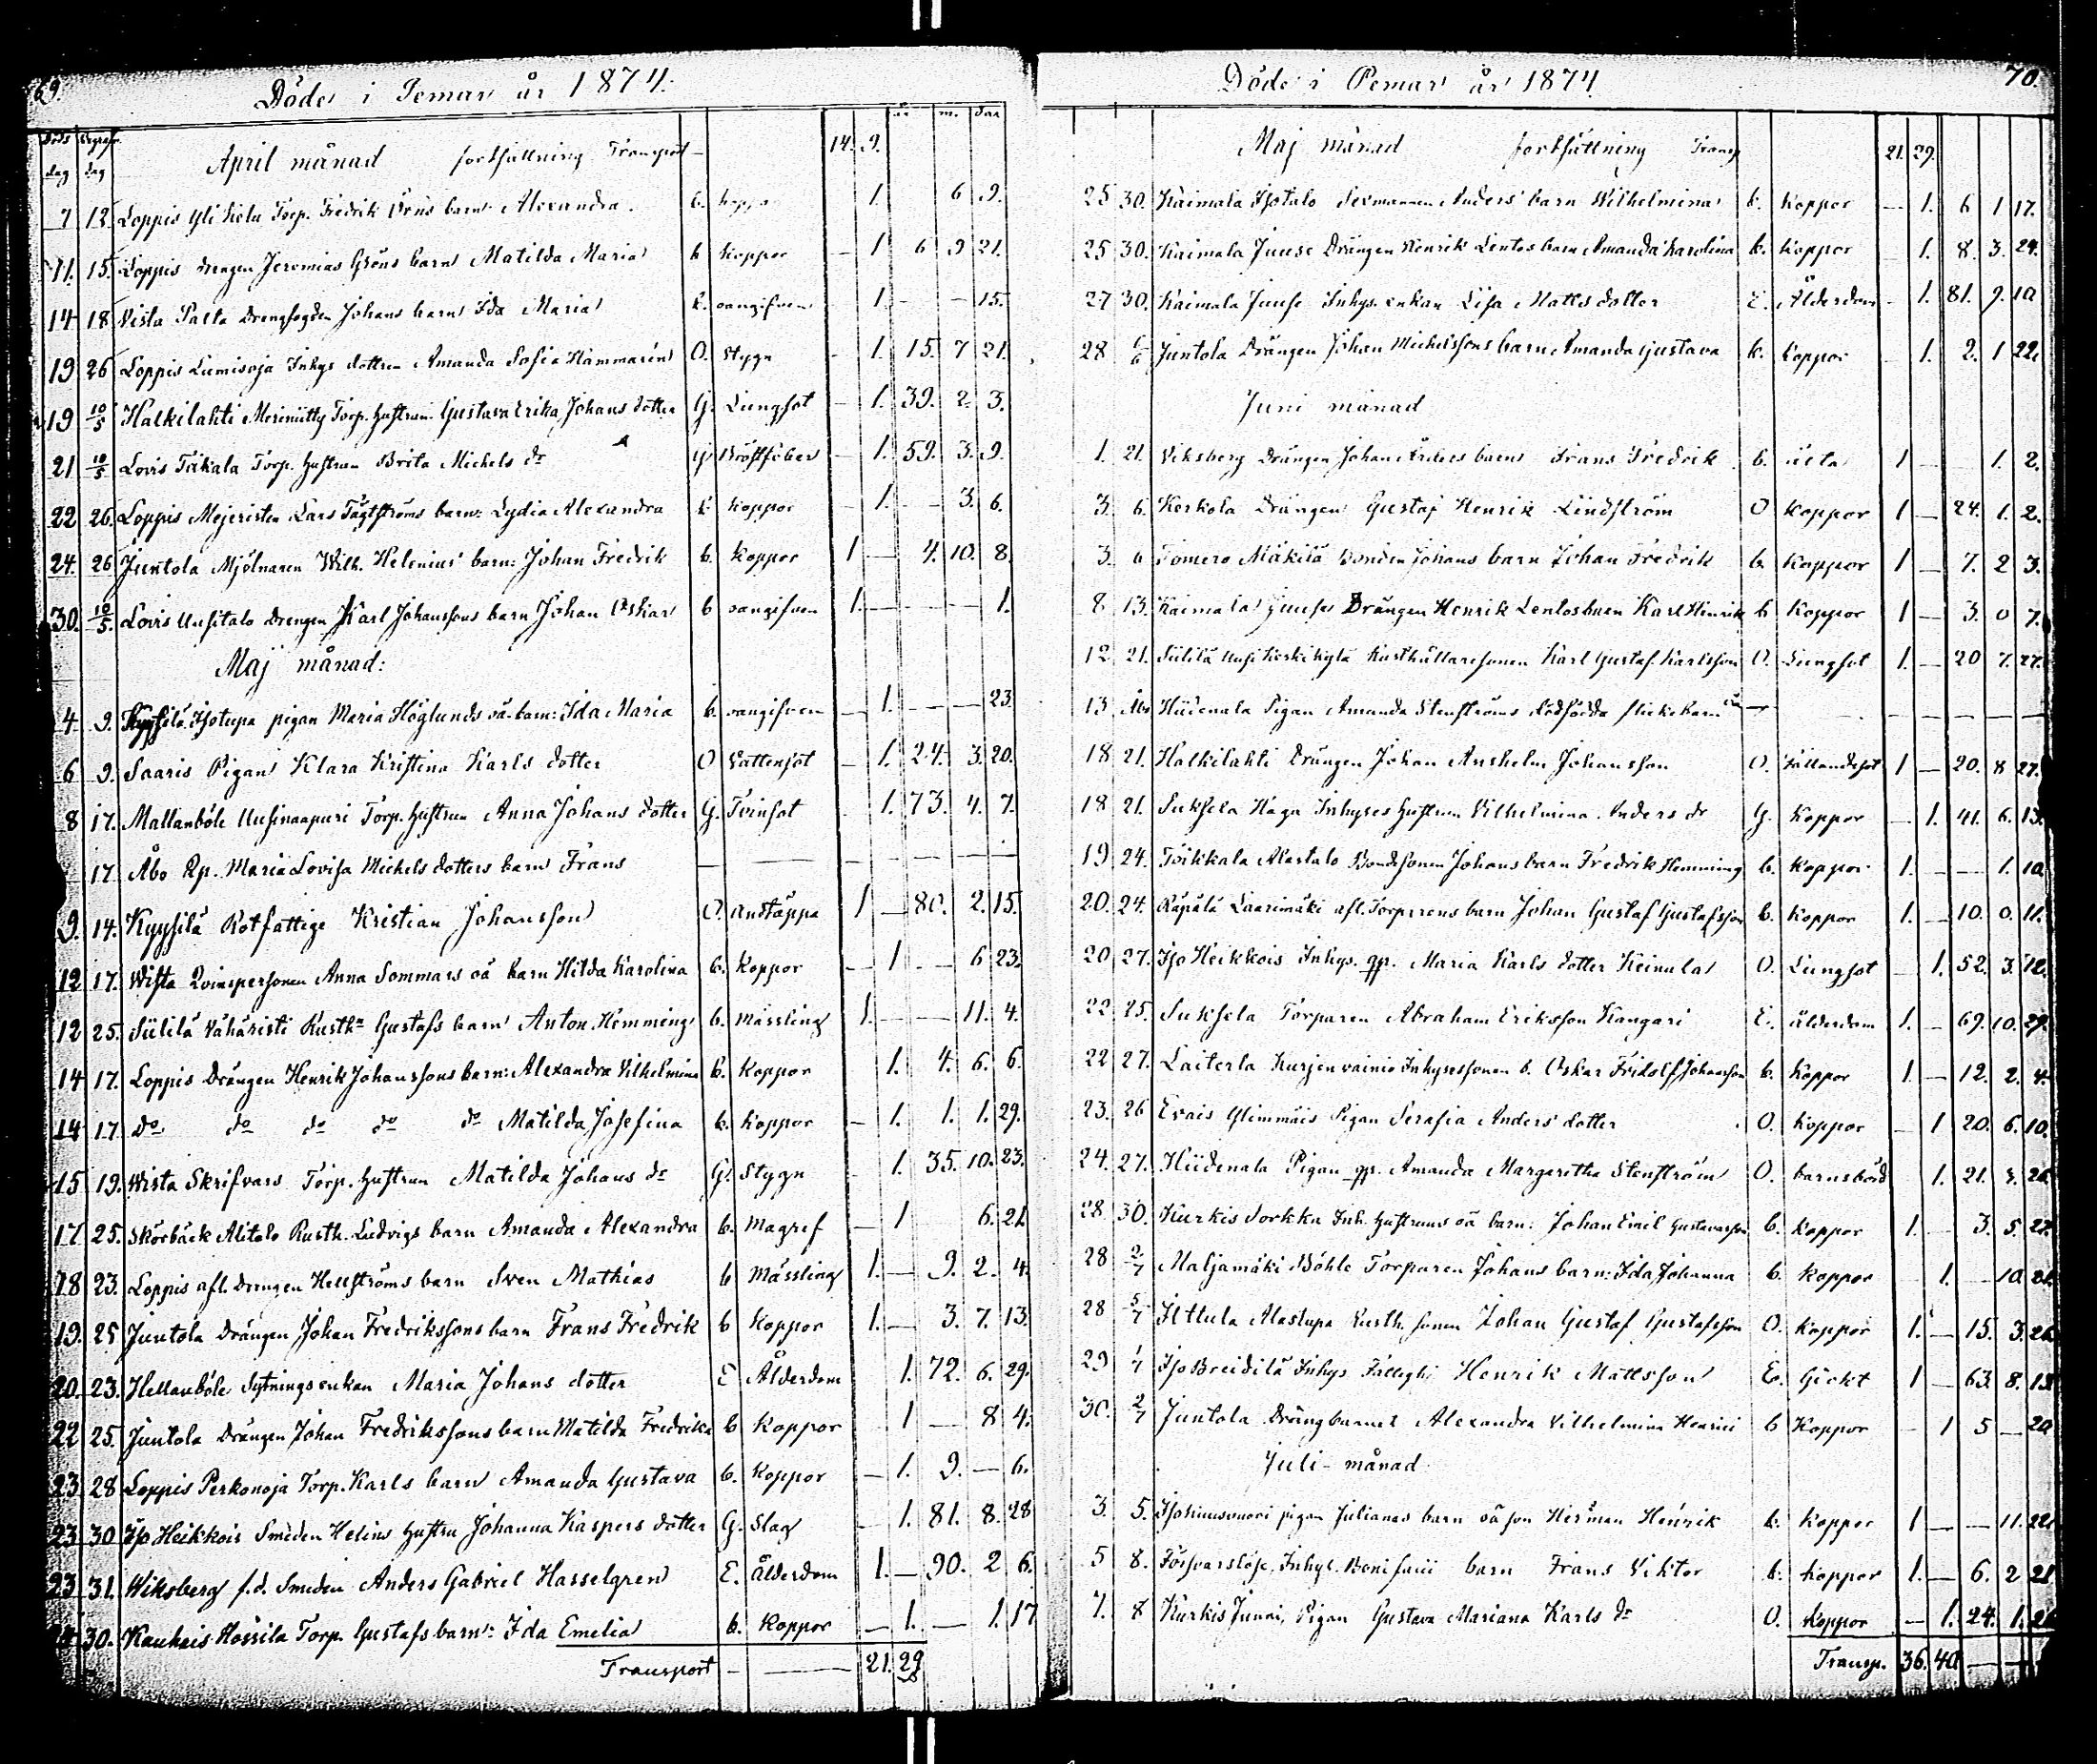 69.
Döde i Pemar år 1874.
Döds dag Begrafn. dag år m. dar
April månad fortsättning Transport — 14. 9.
7 12. Loppis Yli Kelu Torp. Fredrik barn Alexandra. b. 1. 6 9.
11. 15. Loppis Drengen Jeremias Gröns barn Matilda Maria b koppor — 1 6 9 21.
14 18 Vista Palta Drengfogden Johans barn Ida Maria b. oangifven 1. — — 15.
19 26 Loppis Liimisoja Inhys dottren Amanda Sofia Hammarén O. Stygn — 1. 15. 7 21.
19 10/5 Halkilahti Merimiitty Torp. hustrun Gustava Erika Johans dotter G. Lungsot — 1. 39. 2. 3.
21 10/5 Lovis Toikala Torp. hustrun Brita Michels dr G Bröstfeber — 1. 59. 3. 9.
22 26. Loppis Mejeristen Lars Tägtströms barn: Lydia Alexandra b koppor — 1. — 3. 6.
24. 26 Juntola Mjölnaren Wilh. Helenius' barn: Johan Fredrik b. koppor 1 — 4. 10. 8.
30. 10/5. Lovis Uusitalo Drengen Karl Johanssons barn Johan Oskar b oangifven 1. — — — 1.
Maj månad:
4. 9. Kyysilä Isotupa pigan Maria Höglunds oä. barn: Ida Maria b. oangifven — 1. — — 23.
6 9. Saaris Pigan Klara Kristina Karls dotter O Vattensot — 1. 24. 3. 20.
8 17. Mallanböle Uusinaapuri Torp. hustrun Anna Johans dotter G. Tvinsot 1. 73. 4. 7.
17 Åbo Qp. Maria Lovisa Michels dotters barn Frans — — — — — —
9. 14. Kyysilä Rotfattige Kristian Johansson O. andtäppa 1 — 80. 2. 15.
12 17. Wista Qvinspersonen Anna Sommars oä barn Hilda Karolina b. Koppor — 1 — 6 23.
12 25. Siililä Vähäristi Rusth. Gustafs barn Anton Hemming b. mässling 1. — — 11. 4.
14 17. Loppis Drängen Henrik Johanssons barn: Alexandra Vilhelmina b. Koppor 1. 4. 6. 6.
14 17. do do do do do Matilda Josefina b. koppor — 1. 1. 1. 29.
15 19. Wista Skrifvars Torp. hustrun Matilda Johans dr G. Stygn 1. 35. 10. 23.
17 25. Skörbäck Alitalo Rusth. Ludvigs barn Amanda Alexandra b. Magref — 1 6. 21.
18 23. Loppis afl. Drengen Hellströms barn Sven Mathias b Mässling 1. — 9. 2. 4.
19. 25 Juntola Drängen Johan Fredrikssons barn Frans Fredrik b Koppor 1. — 3. 7. 13.
20. 23. Hellanböle Sytningsenkan Maria Johans dotter E Ålderdom 1. 72. 6. 29.
22 25. Juntola Drängen Johan Fredrikssons barn Matilda Fredrika b Koppor 1 — 8 4.
23 28 Loppis Perkonoja Torp. Karls barn Amanda Gustava b. koppor — 1. 9. — 6.
23 30 Iso Heikkois Smeden Helins hustru Johanna Kaspers dotter G. Slag 1. 81. 8. 28
23 31. Wiksberg f.d. Smeden Anders Gabriel Hasselgren E. Ålderdom 1. — 90. 2 6.
30. Kauhais Hässilä Torp. Gustafs barn: Ida Emelia b. Koppor — 1. — 1. 17
Transport — — 21. 29
70.
Döde i Pemar år 1874
Maj månad fortsättning Transp 21. 29.
25 30. Kaimala Isotalo Sexmannen Anders' barn Wilhelmina b. Koppor — 1. 6 1 17.
25 30. Kaimala Juuse Drängen Henrik Lentos barn Amanda Karolina b. Koppor — 1. 8. 3. 24.
27 30. Kaimala Juuse Inhys. enkan Lisa Matts dotter E. Ålderdom — 1. 81. 9. 10
28 Juntola Drängen Johan Michelssons barn Amanda Gustava b. Koppor 1. 2. 1 22.
Juni månad
1. 21. Viksberg Drängen Johan barn Frans Fredrik b. 1 — 1. 2.
3. 6. Kerkola Drängen Gustaf Henrik Lindström O koppor 1 — 24. 1. 2.
3. 6 Tomero Mäkilä Bonden Johans barn Johan Fredrik b. Koppor 1 — 7. 2 3.
8 13. Kaimala Juuse Drängen Henrik Lentos barn Karl Hinrik b Koppor 1 — 3. 0 7.
12 21. Siililä Uusi Keskikylä Rusthållaresonen Karl Gustaf Karlsson O. Lungsot 1. — 20 7. 27.
13 Hiidenala Pigan Amanda Stenströms dödfödda flickebarn — — — — —
18 21. Halkilahti Drängen Johan Anshelm Johansson O. Fallandesot 1 — 20. 8 27.
18 21. Suksela Haga Inhyses hustrun Vilhelmina Anders dr G. Koppor — 1. 41. 6. 13.
19 24. Toikkala Alastalo Bondesonen Johans barn Fredrik Hemming b. Koppor 1. — — 1. 10
20. 24. Räpälä Laarimäki afl. Torparens barn Johan Gustaf Gustafsson b. koppor 1. — 10. 0. 11.
20 27. Iso Heikkois Inhys. qp. Maria Karls dotter Heinula O. Lungsot — 1. 52. 3. 12.
22 25. Suksela Torparen Abraham Eriksson Kangari E. ålderdom 1. — 69. 10. 29.
22 27. Laiterla Kurjenvainio Inhysessonen b. Oskar Fridolf Johansson b. Koppor 1. — 12. 2. 4.
23. 26 Evais Glimmäis Pigan Serafia Anders' dotter O. koppor — 1 20. 6. 10.
24. 27. Hiidenala Pigan qp. Amanda Margaretha Stenström O. barnsbörd 1. 21.
28 30. Kurkis Sorkka Inh. hustruns oä barn: Johan Emil Gustavsson b. koppor 1. — 3. 5. 27.
28 2/7 Maljamäki Böhle Torparen Johans barn: Ida Johanna b. koppor 1. — 10
28 5/7 Ilttula Alastupa Rusth. sonen Johan Gustaf Gustafsson O. koppor 1. — 15. 3.
29 1/7 Iso Breidilä Inhys Fattighj Henrik Mattsson E. Gickt 1 — 63. 8.
30. 2/7 Juntola Drängbarnet Alexandra Vilhelmina b Koppor — 1 5 — 20
Juli månad
3. 5. pigan Julianas barn oä son Herman Henrik b. Koppor 1 — — 11. 22
5 8. Försvarslöse Inhys. barn Frans Viktor b. koppor 1. — 6. 2 21
7. 8 Kurkis Junni, Pigan Gustava Mariana Karls dr O. koppor — 1. 24. 1.
Transp. 36. 40 — —